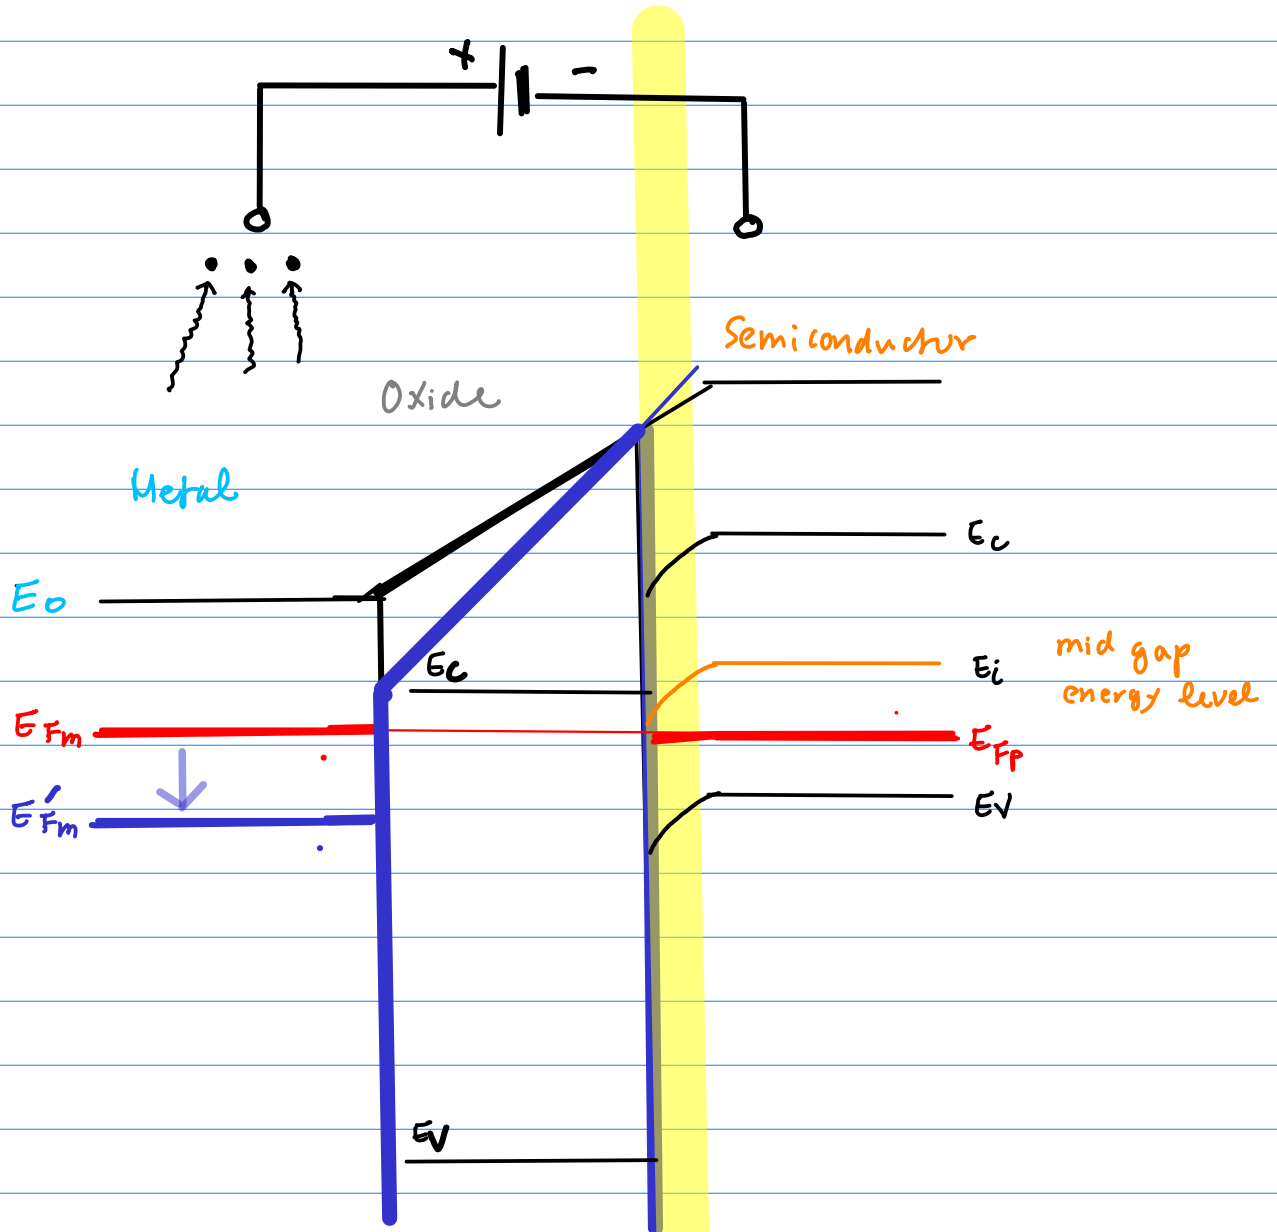 + -
Semiconductor
Oxide
Metal
Ec
Eo
mid gap
Ei
energy level
Ec
EFm
EFp
E'Fm
EV
EV